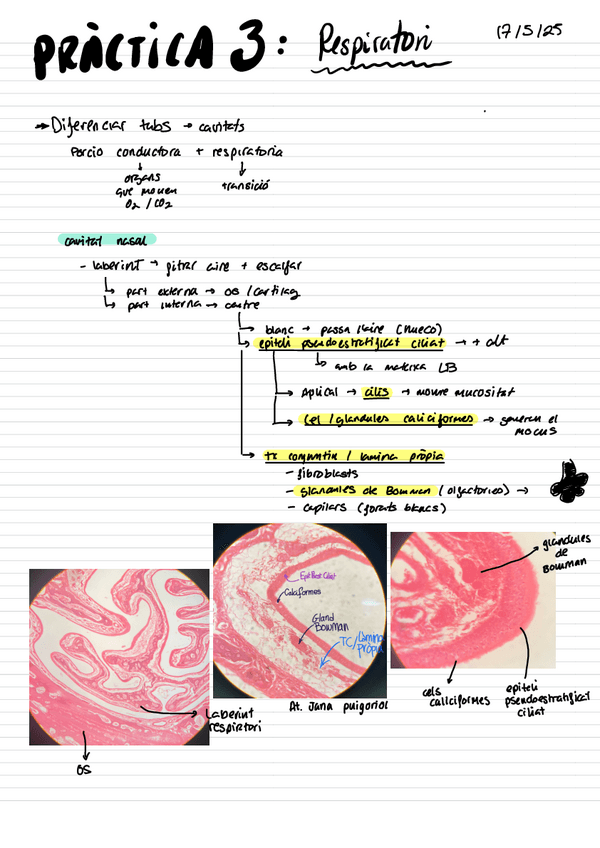 PRÀCTICA 3: Respiratori 17/5/25
→ Diferenciar tubs → cavitats
Porcio conductora + respiratoria
organs
que mouen
O₂ / CO₂
transició
cavitat nasal
- laberint → pitrar aire + escalfar
part externa → os / cartilag
part interna → centre
blanc → passa l'aire (hueco)
epiteli pseudoestratificat ciliat → + alt
amb la mateixa LB
Apical → cilis → moure mucositat
Cel / glandules caliciformes → generen el
mocus
tc conjuntiu / lamina pròpia
- fibroblasts
- glandules de Bowman (olfactorico) →
- capilars (forats blancs)
glandules
de
Bowman
Caliciformes
Gland
Bowman
TC / Lamina
pròpia
Laberint
respiratori
os
At. Jana puigoriol
cels
caliciformes
epiteli
pseudoestratificat
ciliat